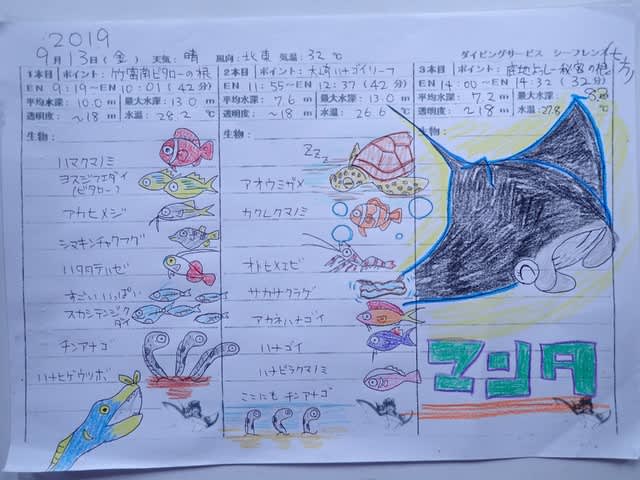 2019
9月13日(金) 天気: 晴 風向: 北東 気温: 32℃ ダイビングサービス シーフレンズ
1本目 ポイント: 竹富南ビタローの根
EN 9:19〜EN 10:01 (42分)
平均水深: 10.0m 最大水深: 13.0m
透明度: 〜18m 水温: 28.2℃
生物:
ハマクマノミ
ヨスジフエダイ
(ビタロー)
アカヒメジ
シマキンチャクフグ
ハタタテハゼ
すごいいっぱい
スカシテンジクダイ
チンアナゴ
ハナヒゲウツボ
2本目 ポイント: 大崎ハナゴイリーフ
EN 11:55〜EN 12:37 (42分)
平均水深: 7.6m 最大水深: 13.0m
透明度: 〜18m 水温: 26.6℃
生物:
ZZZ
アオウミガメ
カクレクマノミ
オトヒメエビ
サカサクラゲ
アカネハナゴイ
ハナゴイ
ハナビラクマノミ
ここにも チンアナゴ
3本目 ポイント:
EN 14:00〜EN 14:32 (32分)
平均水深: 7.2m 最大水深:
透明度: 〜18m 水温: 27.8
生物:
マンタ